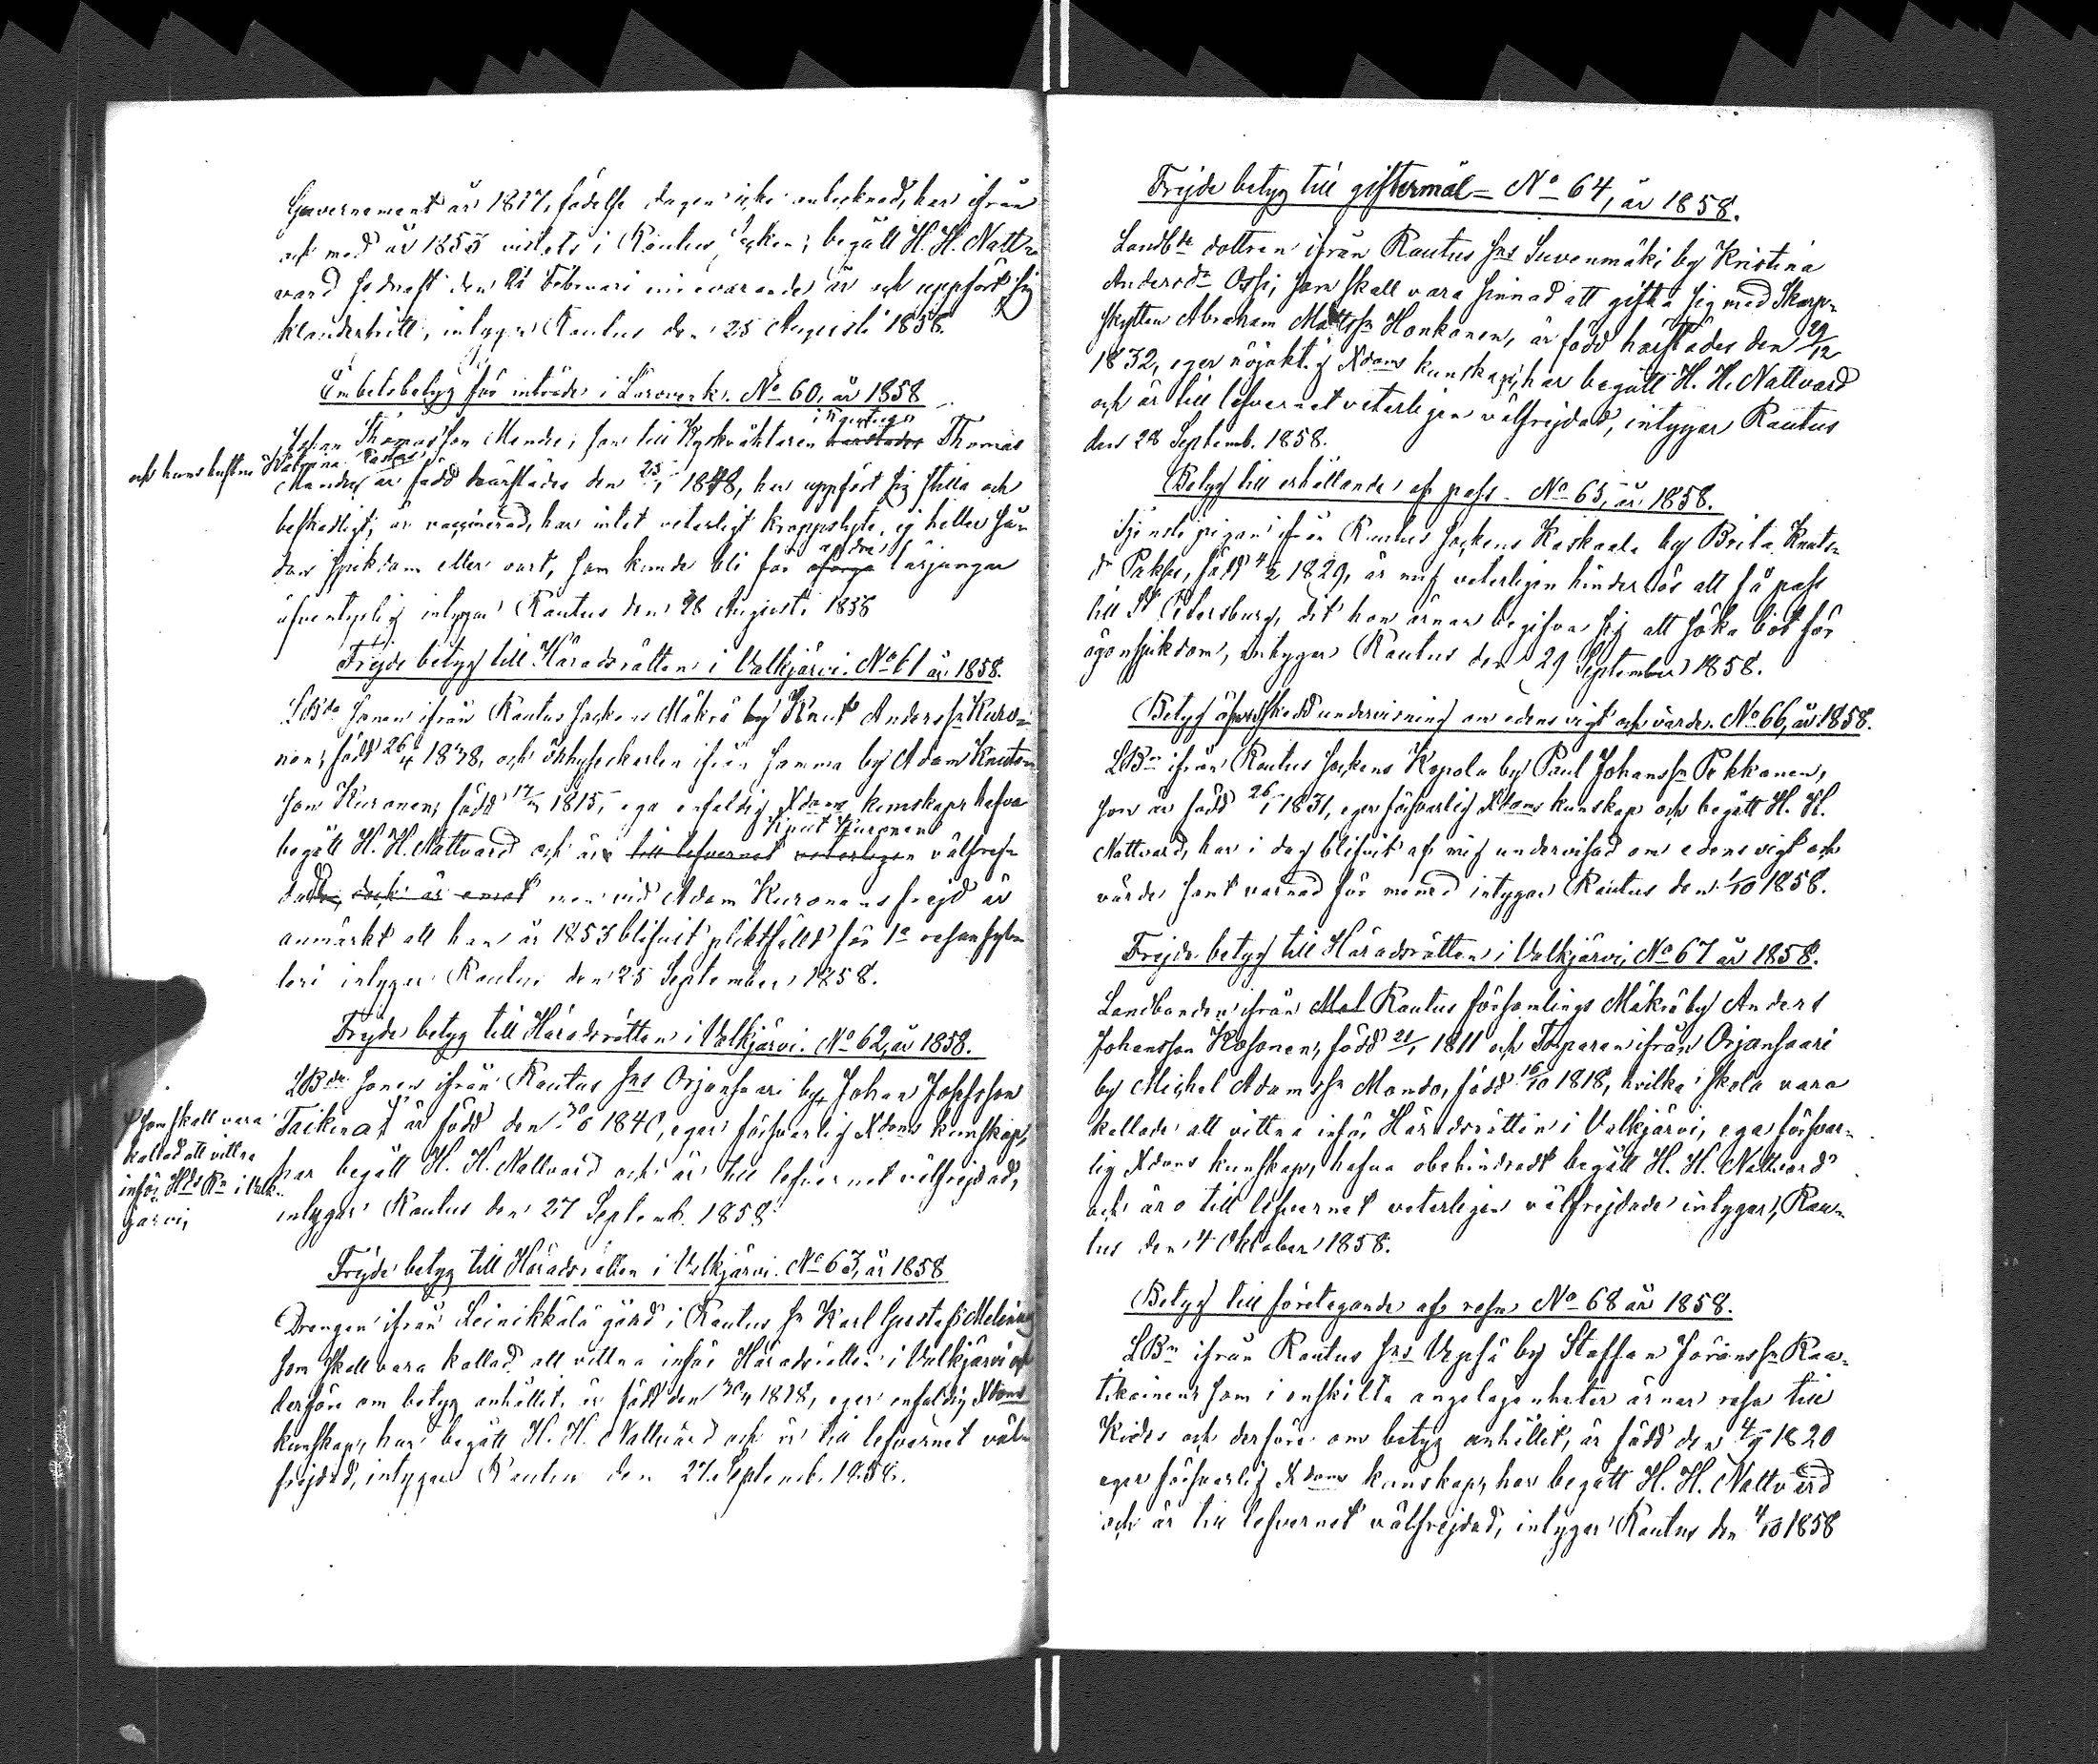 Guvernement år 1817, födelse dagen icke antecknad, har ifrån
och med år 1855 vistats i Rautus Socken; begått H. H. Natt-
vard sednast den 21 Februari innevarande år och uppfört sig
klanderfritt, intygar Rautus den 25 Augusti 1858.
Embetsbetyg för inträde i Läroverk. No 60, år 1858
Johan Thomasson Mandu, son till Kyrkväktaren härstädes Thomas
och hans hustru Katrina
Mandu är född härstädes den 25/1 1848, har uppfört sig stilla och
beskedligt, är vaccinerad, har intet veterligt kroppslyte, ej heller sån
dan sjukdom eller vart, som kunde bli för öfriga andra lärjungar
äfventyrlig intygar Rautus den 28 Augusti 1858
Frejde betyg till Häradsrätten i Valkjärvi. No 61 år 1858.
LBde sonen ifrån Rautus Sockens Mäkrä by Knut Anderssn Kuro-
nen, född 26/4 1838, och inhyseskarlen ifrån samma by Adam Knuts-
son Kuronen, född 1815, ega enfaldig Xdoms kunskap, hafva
begått H. H. Nattvard och är till lefvernet veterligen Knut Kuronen välfrej-
dad, dock är emot men vid Adam Kuronens frejd är
anmärkt att han år 1853 blifvit pliktfälld för 1a resan fyl-
leri intygar Rautus den 25 September 1858.
Frejde betyg till Häradsrätten i Valkjärvi. No 62, år 1858.
LBde sonen ifrån Rautus Sns Orjansaari by, Johan Josefsson
Taikina är född den 30/6 1840, eger försvarlig Xdoms kunskap,
som skall vara
kallad att vittna
inför Hds Rn i Valk-
järvi,
har begått H. H. Nattvard och är till lefvernet välfrejdad,
intygar Rautus den 27 Septemb. 1858
Frejde betyg till Häradsrätten i Valkjärvi. No 63, år 1858
Drengen ifrån Leinikkälä gård i Rautus Sn Karl Gustaf Melin
som skall vara kallad att vittna inför Häradsrätten i Valkjärvi och
derföre om betyg anhållit, är född den 1828, eger enfaldig Xdoms
kunskap, har begått H. H. Nattvard och är till lefvernet väl-
frejdad, intygar Rautus den 27 Septemb. 1858.
Frejde betyg till giftermål = No 64, år 1858.
Landbde dottren ifrån Rautus Sns Suvenmäki by Kristina
Andersdr Ossi, som skall vara sinnad att gifta sig med Skarp-
skytten Abraham Mattssn Honkanen, är född härstädes den 29/12
1832, eger nöjaktig Xdoms kunskap, har begått H. H. Nattvard
och är till lefvernet veterligen välfrejdad, intygar Rautus
den 28 Septemb. 1858.
Betyg till erhållande af pass. No 65, år 1858.
Tjenste pigan ifrån Rautus Sockens Kaskaala by Brita Knuts-
dr Pukse, född 4/2 1829, är mig veterligen hinderlös att få pass
till St Petersburg, dit hon ärnar begifva sig att söka bot för
ögonsjukdom, intygar Rautus den 29 September 1858.
Betyg öfver skedd undervisning om edens vigt och värde. No 66, år 1858.
LBn ifrån Rautus Sockens Kopola by Paul Johanssn Pekkanen,
som är född 26/1 1831, eger försvarlig Xdoms kunskap och begått H. H.
Nattvard, har i dag blifvit af mig undervisad om edens vigt och
värde samt varnad för mened intygar Rautus den 1/10 1858.
Frejde betyg till Häradsrätten i Valkjärvi, No 67 år 1858.
Landbonden ifrån Mal Rautus församlings Mäkrä by Anders
Johansson Kosonen, född 21/1 1811 och Torparen ifrån Orjansaari
by Michel Adamssn Mando, född 16/10 1818, hvilka skola vara
kallade att vittna inför Häradsrätten i Valkjärvi, ega försvar-
lig Xdoms kunskap, hafva obehindradt begått H. H. Nattvard
och äro till lefvernet veterligen välfrejdade intygar, Rau-
tus den 4 Oktober 1858.
Betyg till företagande af resa No 68 år 1858.
LBn ifrån Rautus Sns Vepsä by Staffan Jöranssn Raa-
tikainen som i enskilta angelägenheter ärnar resa till
Kides och derföre om betyg anhållit, är född den 4/9 1820
eger försvarlig Xdoms kunskap, har begått H. H. Nattvard
och är till lefvernet välfrejdad, intygar Rautus den 4/10 1858